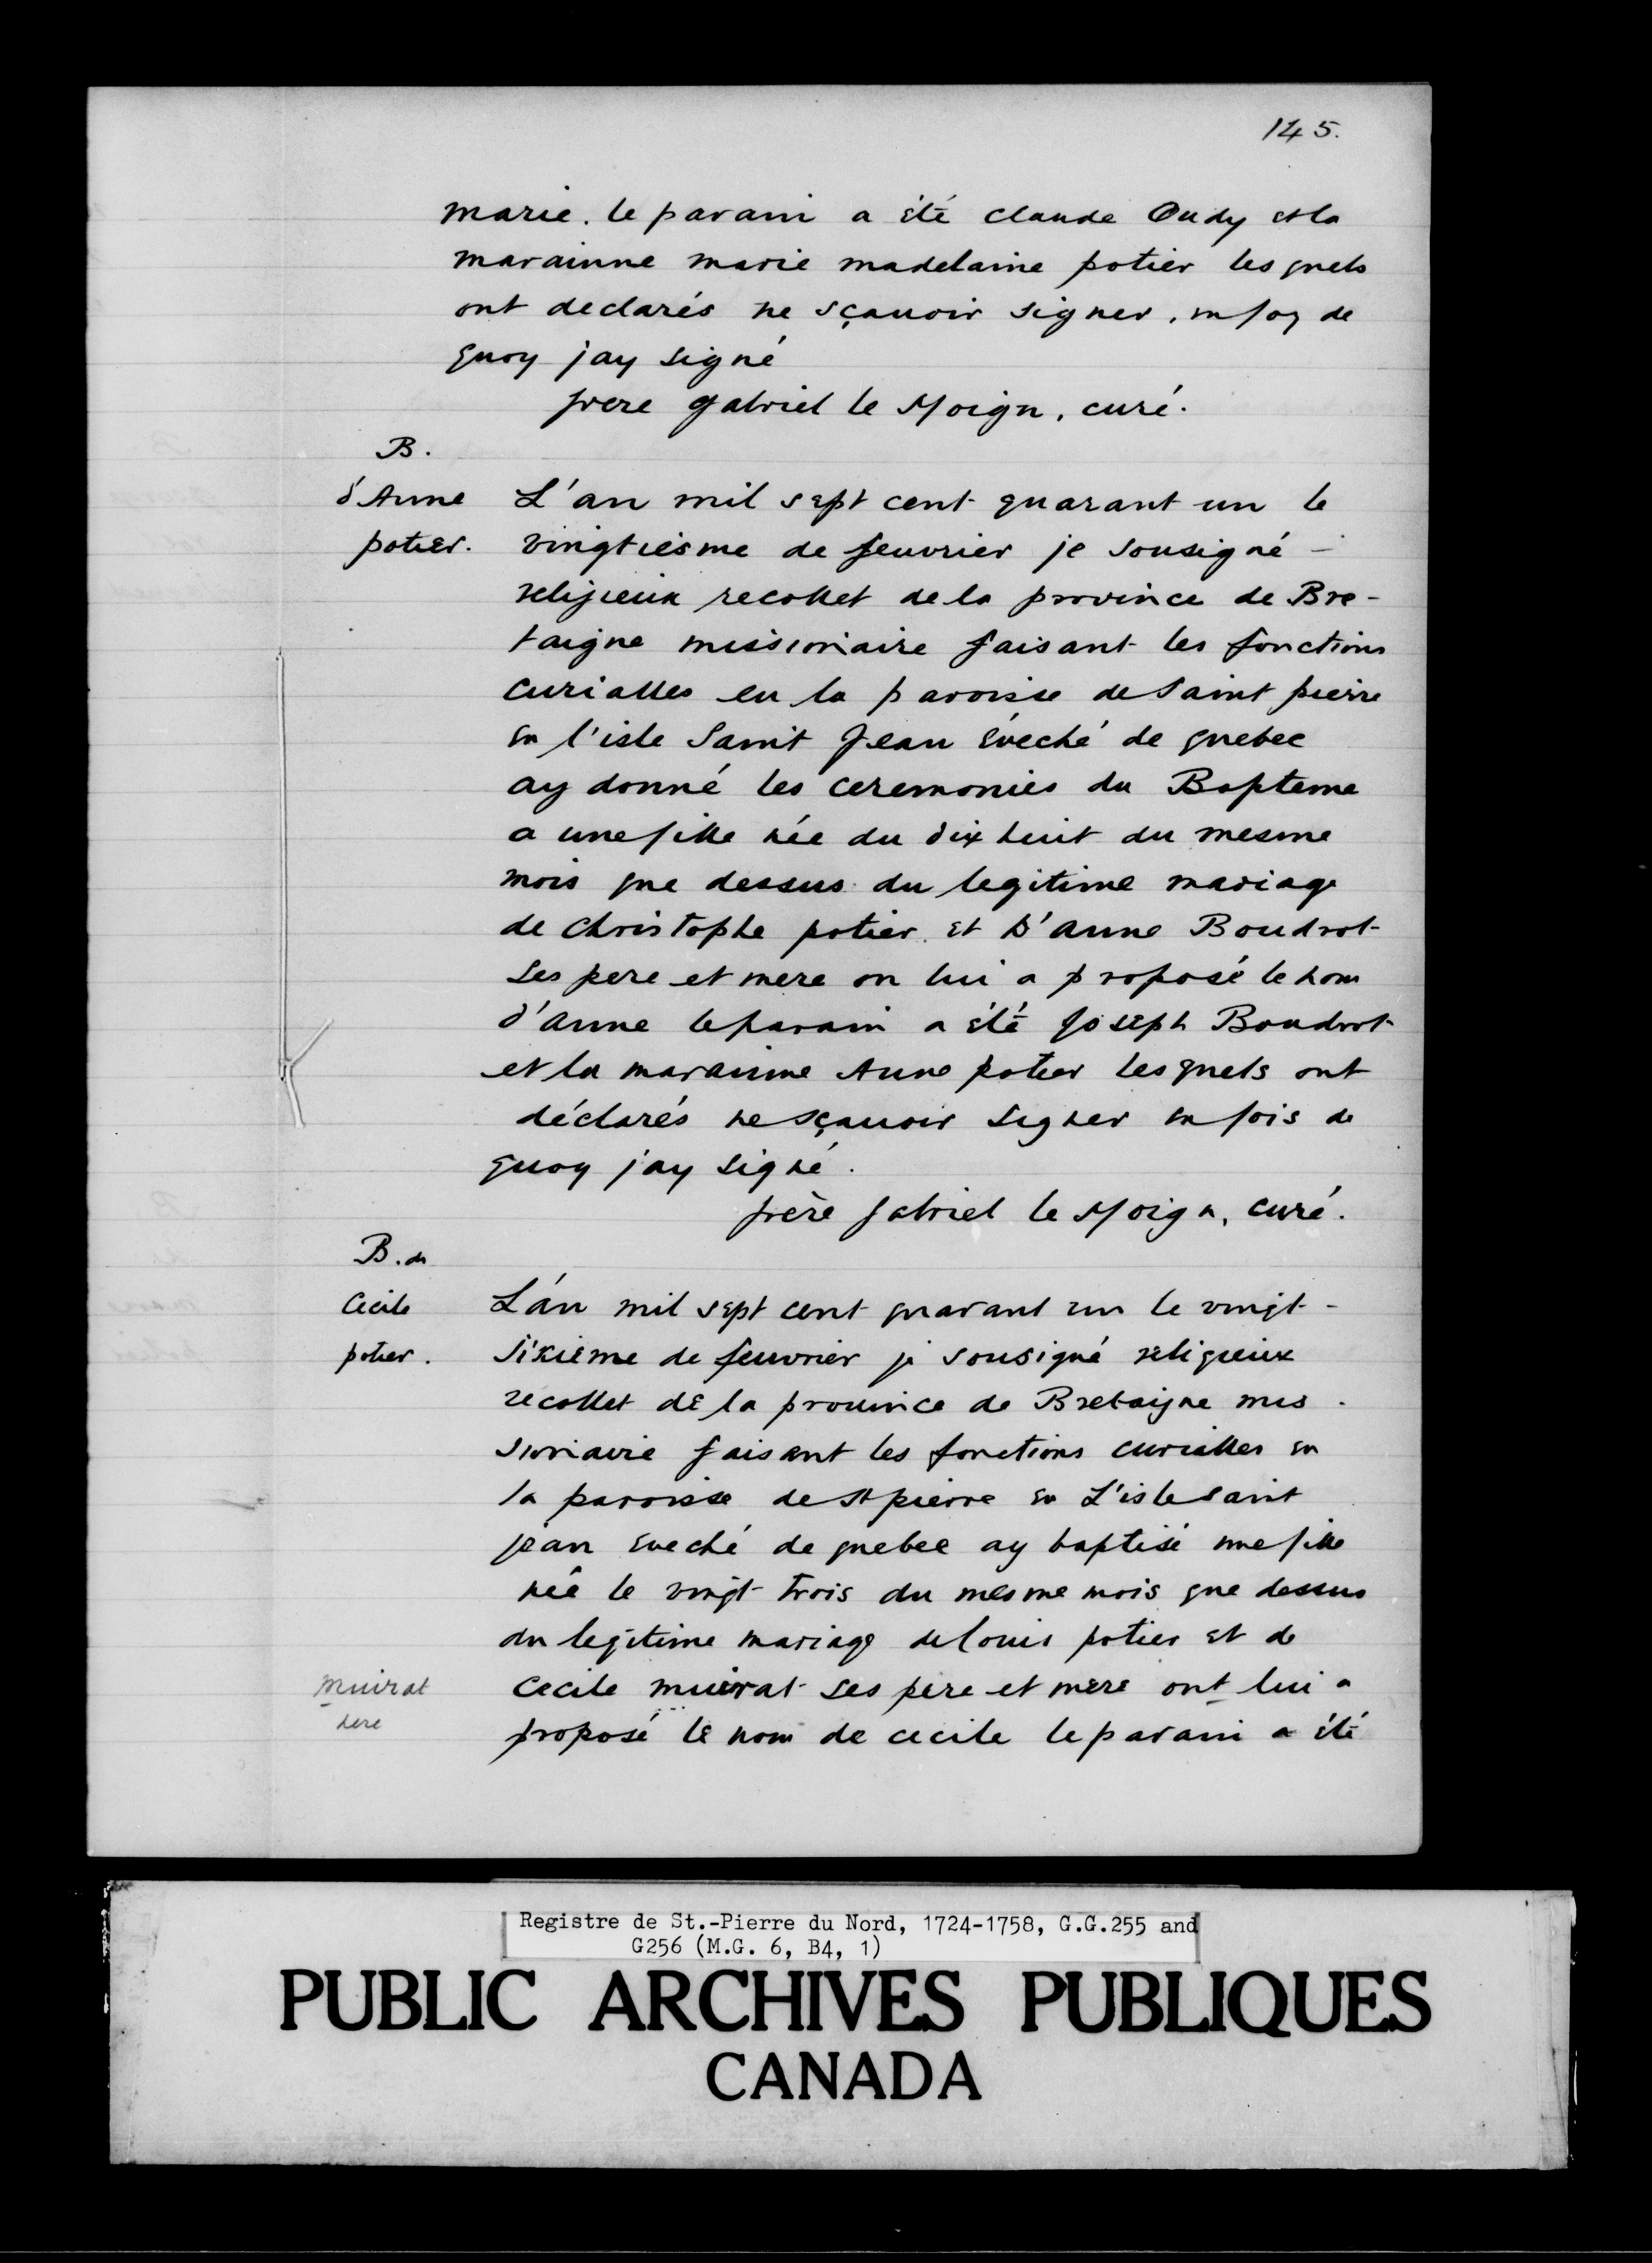 145.
marie. le parain a été claude Oudy et la
marainne marie madelaine potier les quels
ont declarés ne sçauoir signer, en foy de
quoy jay signé
frere gabriel le Moign, curé.
B.
d'Anne
potier.
L'an mil sept cent quarant un le
vingtiesme de feuvrier je sousigné -
religieux recollet de la province de Bre-
taigne missionaire faisant les fonctions
curialles en la paroisse de Saint pierre
en l'isle Saint Jean évéché de quebec
ay donné les ceremonies du Bapteme
a une fille née du dix huit du mesme
mois que dessus du legitime mariage
de christophe potier et D'anne Boudrot
ses pere et mere on lui a proposé le nom
d'anne le parain a été Joseph Boudrot
et la marainne Anne potier les quels ont
déclarés ne sçauoir signer en fois de
quoy j'ay signé.
frère gabriel le Moign, curé.
B. de
Cecile
potier.
L'an mil sept cent quarant un le vingt-
sixième de feuvrier je sousigné religieux
recollet de la prouince de Bretaigne mis-
sionaire faisant les fonctions curialles en
la paroisse de st pierre en L'isle saint
jean eveché de quebec ay baptisé une fille
née le vingt trois du mesme mois que dessus
du legitime mariage de louis potier et de
Cecile muirat ses père et mere ont lui a
proposé le nom de cecile le parain a été
muirat
here
Registre de St.-Pierre du Nord, 1724-1758, G.G.255 and
G256 (M.G. 6, B4, 1)
PUBLIC ARCHIVES PUBLIQUES
CANADA